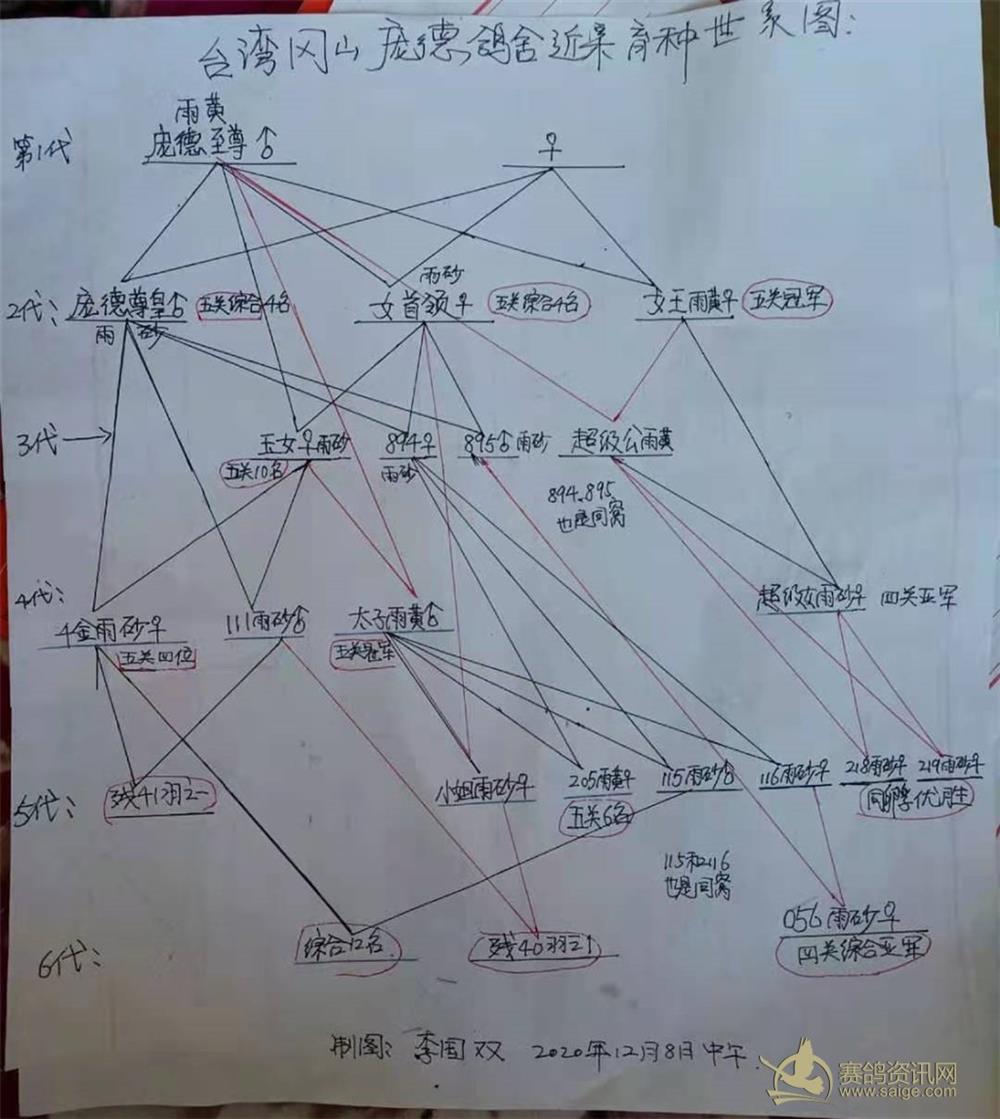 台湾冈山庞德鸽舍近亲育种世系图:
第1代
雨黄
庞德至尊♂
♀
2代:
庞德尊皇♂ 五关综合4名
雨砂
雨砂
女首领♀ 五关综合4名
女王雨黄♀ 五关冠军
3代
玉女♀雨砂
五关10名
894♀
雨砂
895♂雨砂
超级公雨黄
894、895
也是同窝
4代:
4金雨砂♀
五关四位
111雨砂♂
太子雨黄♂
五关冠军
超级女雨砂♀ 四关亚军
5代:
残41羽之一
小姐雨砂♀
205雨黄♀
五关6名
115雨砂♂
116雨砂♀
218雨砂♀
219雨砂♀
同孵优胜
115和116
也是同窝
6代:
综合12名
残40羽
056雨砂♀
四关综合亚军
制图:李国双 2020年12月8日中午
赛鸽资讯网
www.saige.com